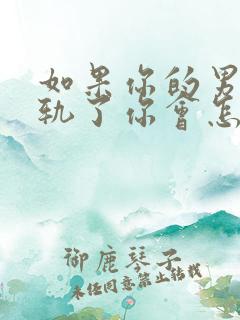 如果你的男
轨了你会怎
御鹿琴子
未经同意禁止转载